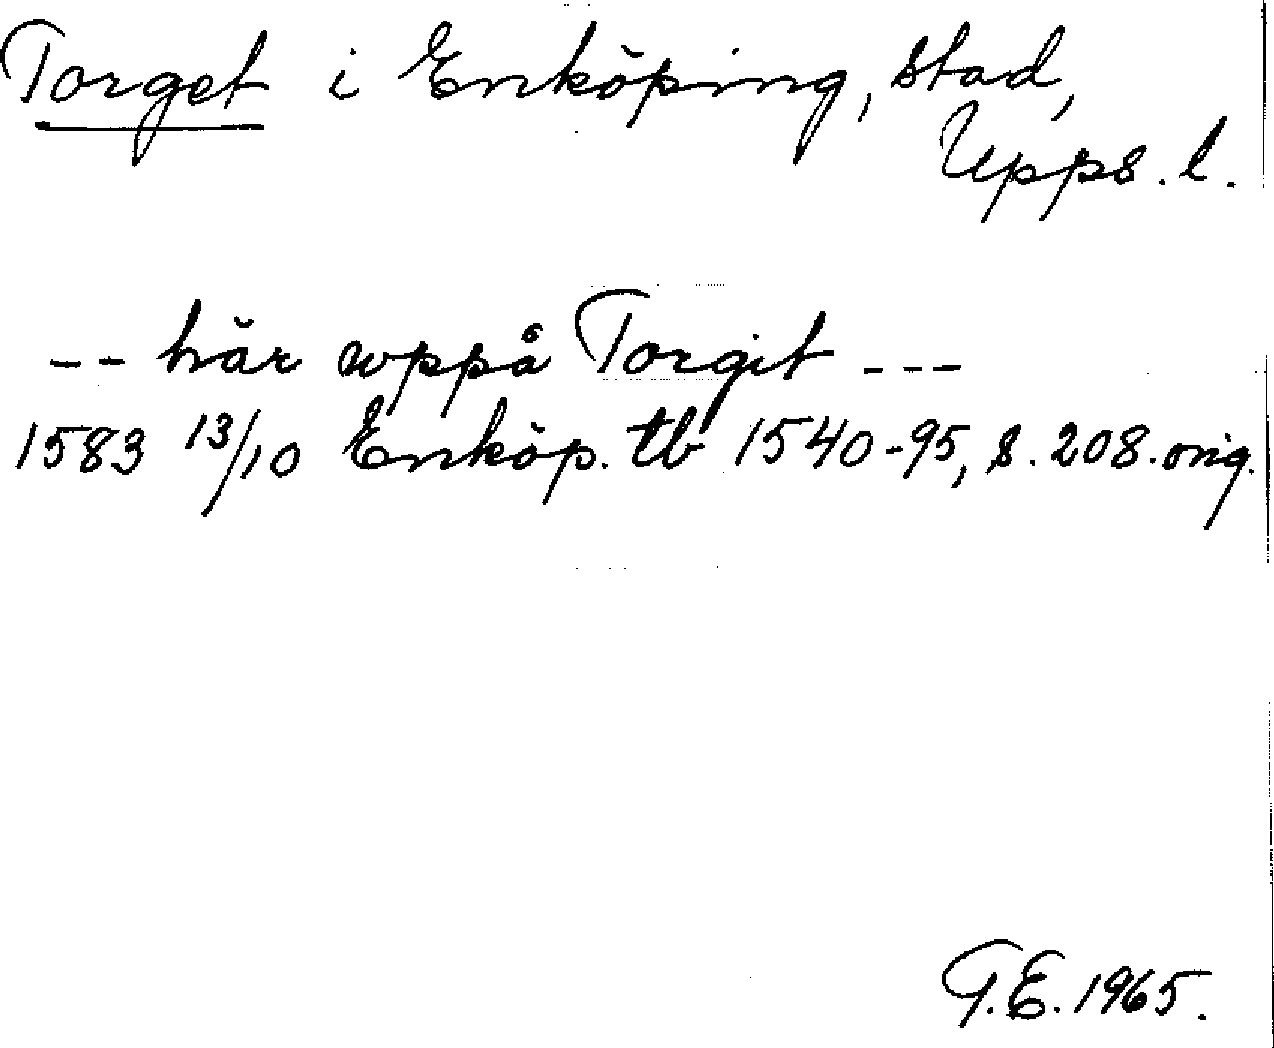 Torget i Enköping, stad,
Upps. l.
-- här wppå Torgit ---
1583 13/10 Enköp. tb 1540-95, s. 208. orig.
G.E. 1965.